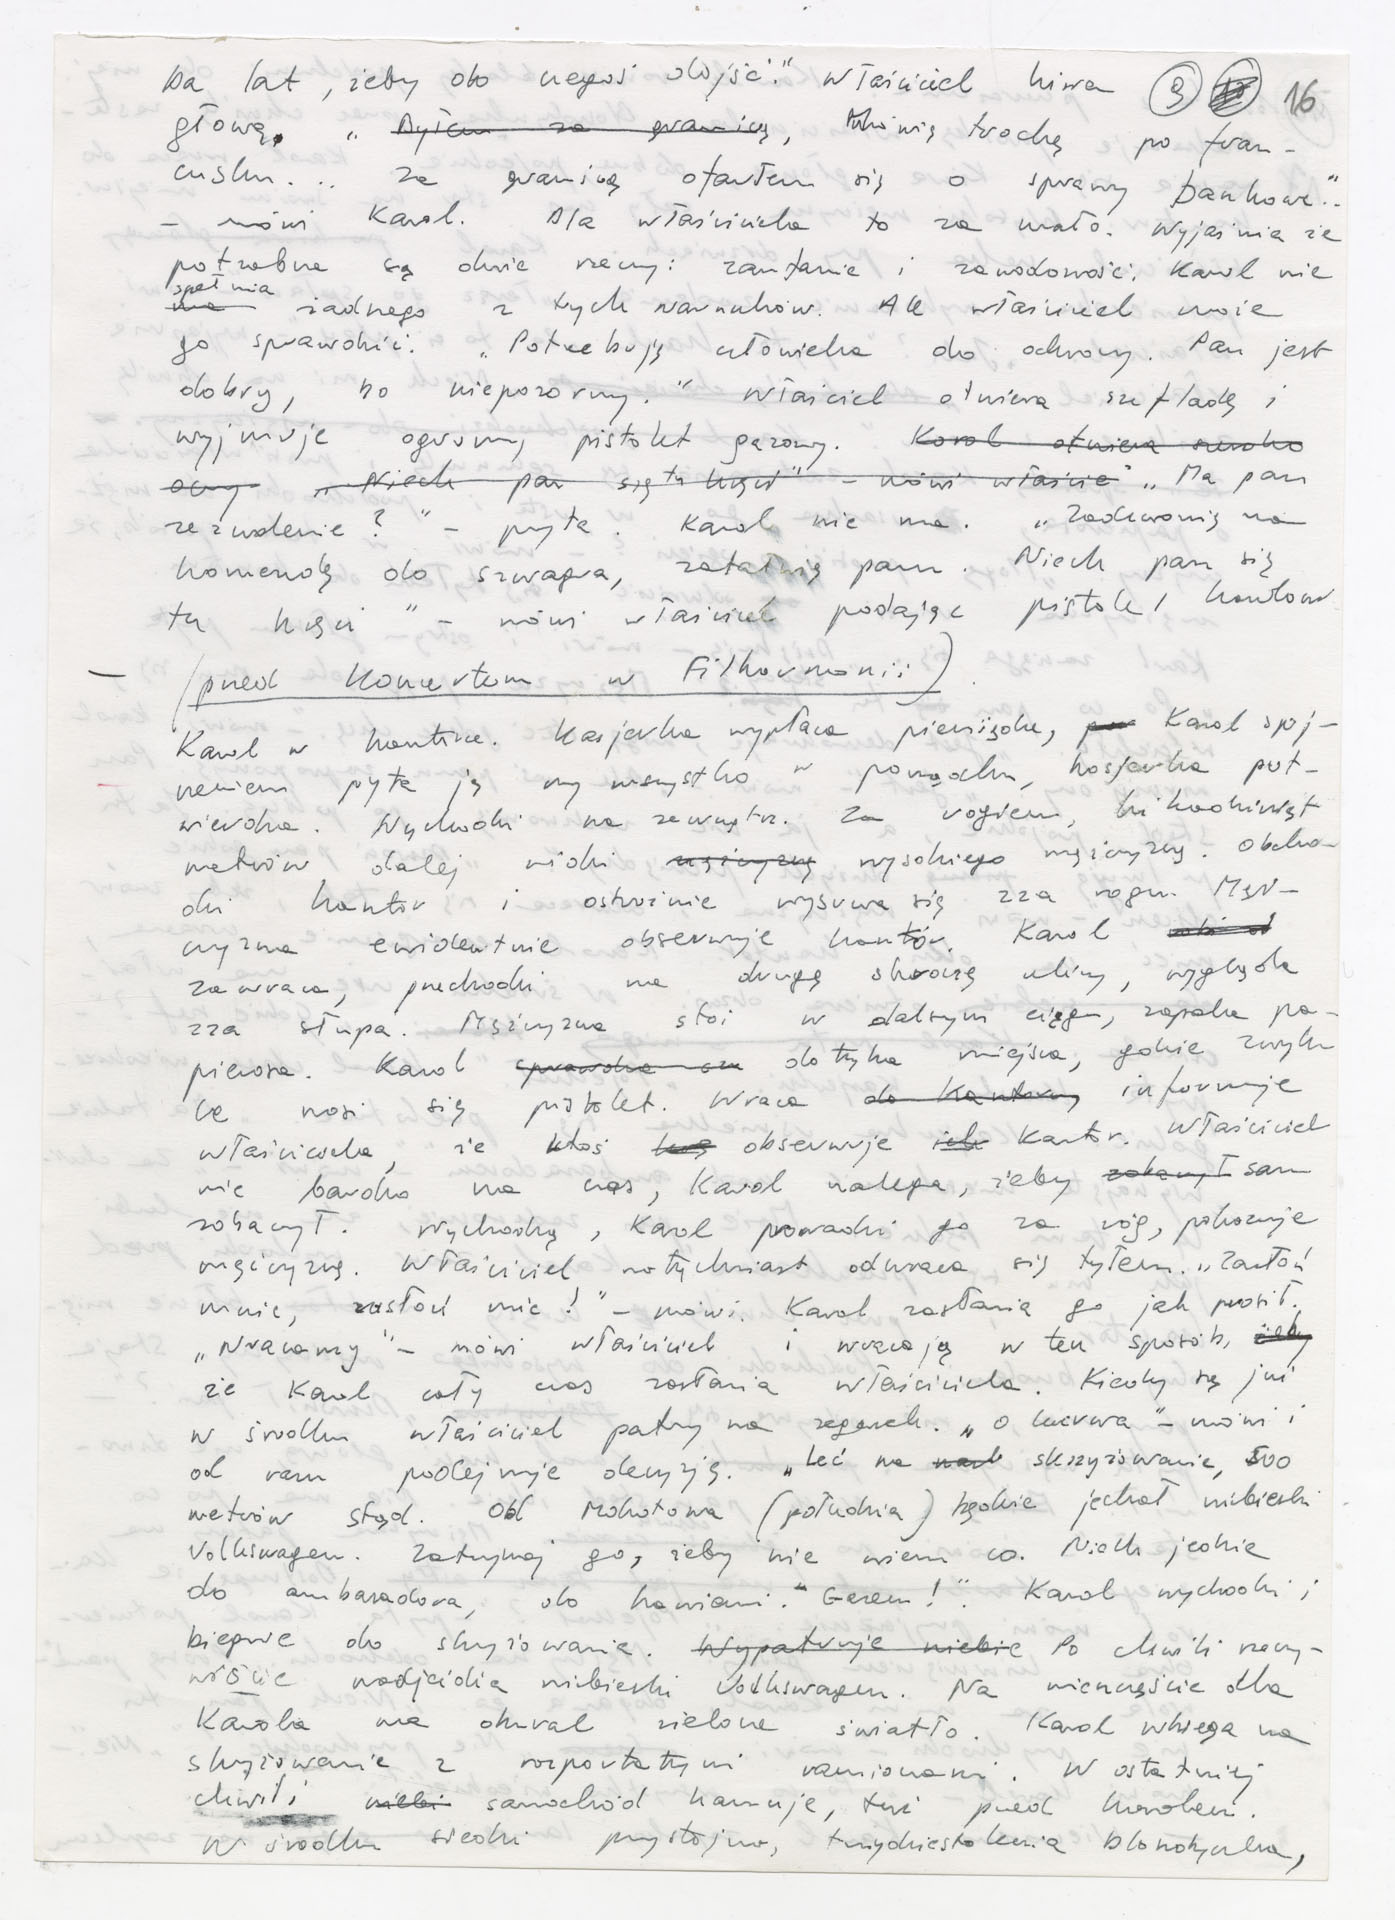 ba lat, żeby do czegoś dojść." Właściciel kiwa 9 16
głową. „Byłem za granicą, Mówię trochę po fran-
cusku... za granicą otarłem się o sprawy bankowe."
- mówi Karol. Dla właściciela to za mało. Wyjaśnia że
potrzebne są dwie rzeczy: zaufanie i zawodowość. Karol nie
spełnia
ma żadnego z tych warunków. Ale właściciel może
go sprawdzić. „Potrzebuję człowieka do ochrony. Pan jest
dobry, bo niepozorny." Właściciel otwiera szufladę i
wyjmuje ogromny pistolet gazowy. Karol otwiera szeroko
oczy „Niech pan się tu kręci" - mówi właście „Ma pan
zezwolenie?" - pyta. Karol nie ma. „Zadzwonię na
komendę do szwagra, załatwię panu. Niech pan się
tu kręci" - mówi właściciel podając pistolet Karolowi
(przed Koncertem w Filharmonii)
Karol w kantorze. Kasjerka wypłaca pieniądze, Karol spoj-
rzeniem pyta ją czy wszystko w porządku, kasjerka pot-
wierdza. Wychodzi na zewnątrz. Za rogiem, kilkadziesiąt
metrów dalej widzi mężczyznę wysokiego mężczyznę. Obcho-
dzi kantor i ostrożnie wysuwa się zza rogu. Męż-
czyzna ewidentnie obserwuje kantor. Karol
zawraca, przechodzi na drugą stronę ulicy, wygląda
zza słupa. Mężczyzna stoi w dalszym ciągu, zapala pa-
pierosa. Karol sprawdza czy dotyka miejsca, gdzie zwyk
le nosi się pistolet. Wraca do kantoru, informuje
właściciela, że ktoś obserwuje ich Kantor. Właściciel
nie bardzo ma czas, Karol nalega, żeby zobaczył sam
zobaczył. Wychodzą, Karol prowadzi go za róg, pokazuje
mężczyznę. Właściciel natychmiast odwraca się tyłem. „Zasłoń
mnie, zasłoń mnie!" - mówi. Karol zasłania go jak prosił.
„Wracamy" - mówi właściciel i wracają w ten sposób, żeby
że Karol cały czas zasłania właściciela. Kiedy są już
w środku właściciel patrzy na zegarek. „O kurwa" - mówi i
od razu podejmuje decyzję. „Leć na skrzyżowanie, 500
metrów stąd. Od Mokotowa (południa) będzie jechał niebieski
Volkswagen. Zatrzymaj go, żeby nie wiem co. Niech jedzie
do ambasadora, do kawiarni." Gazem!". Karol wychodzi i
biegnie do skrzyżowania. Wypatruje niebie Po chwili rzeczy-
wiście nadjeżdża niebieski Volkswagen. Na nieszczęście dla
Karola ma akurat zielone światło. Karol wbiega na
skrzyżowanie z rozpostartymi ramionami. W ostatniej
chwili niebi samochód hamuje, tuż przed Karolem.
W środku siedzi przystojna, trzydziestoletnia blondynka,